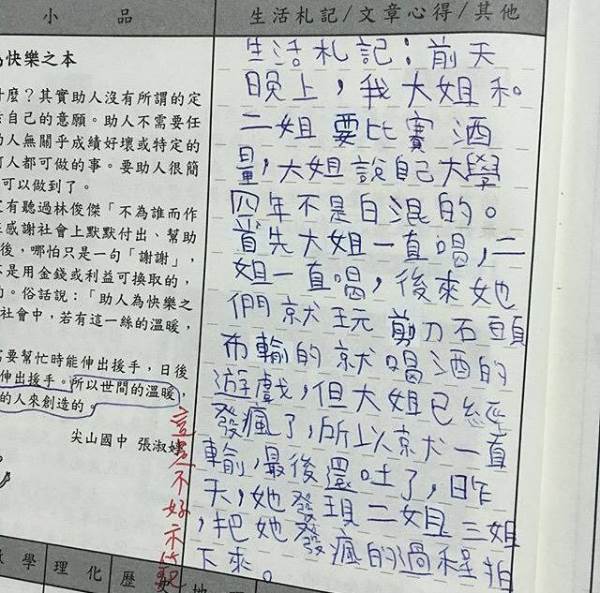 小 品
生活札記/文章心得/其他
為快樂之本
什麼?其實助人沒有所謂的定
自己的意願。助人不需要任
助人無關乎成績好壞或特定的
何人都可做的事。要助人很簡
可以做到了。
有聽過林俊傑「不為誰而作
感謝社會上默默付出、幫助
後,哪怕只是一句「謝謝」,
是用金錢或利益可換取的,
。俗話說:「助人為快樂之
社會中,若有這一絲的溫暖,
需要幫忙時能伸出援手,日後
伸出援手。所以世間的溫暖,
的人來創造的。
尖山國中 張淑
生活札記:前天
晚上,我大姐和
二姐要比賽酒
量,大姐說自己大學
四年不是白混的。
首先大姐一直喝,二
姐一直喝,後來她
們就玩剪刀石頭
布輸的就喝酒的
遊戲,但大姐已經
發瘋了,所以就一直
輸,最後還吐了,昨
天,她發現二姐三姐
,把她發瘋的過程拍
下來。
不好
數學
理化
歷
地